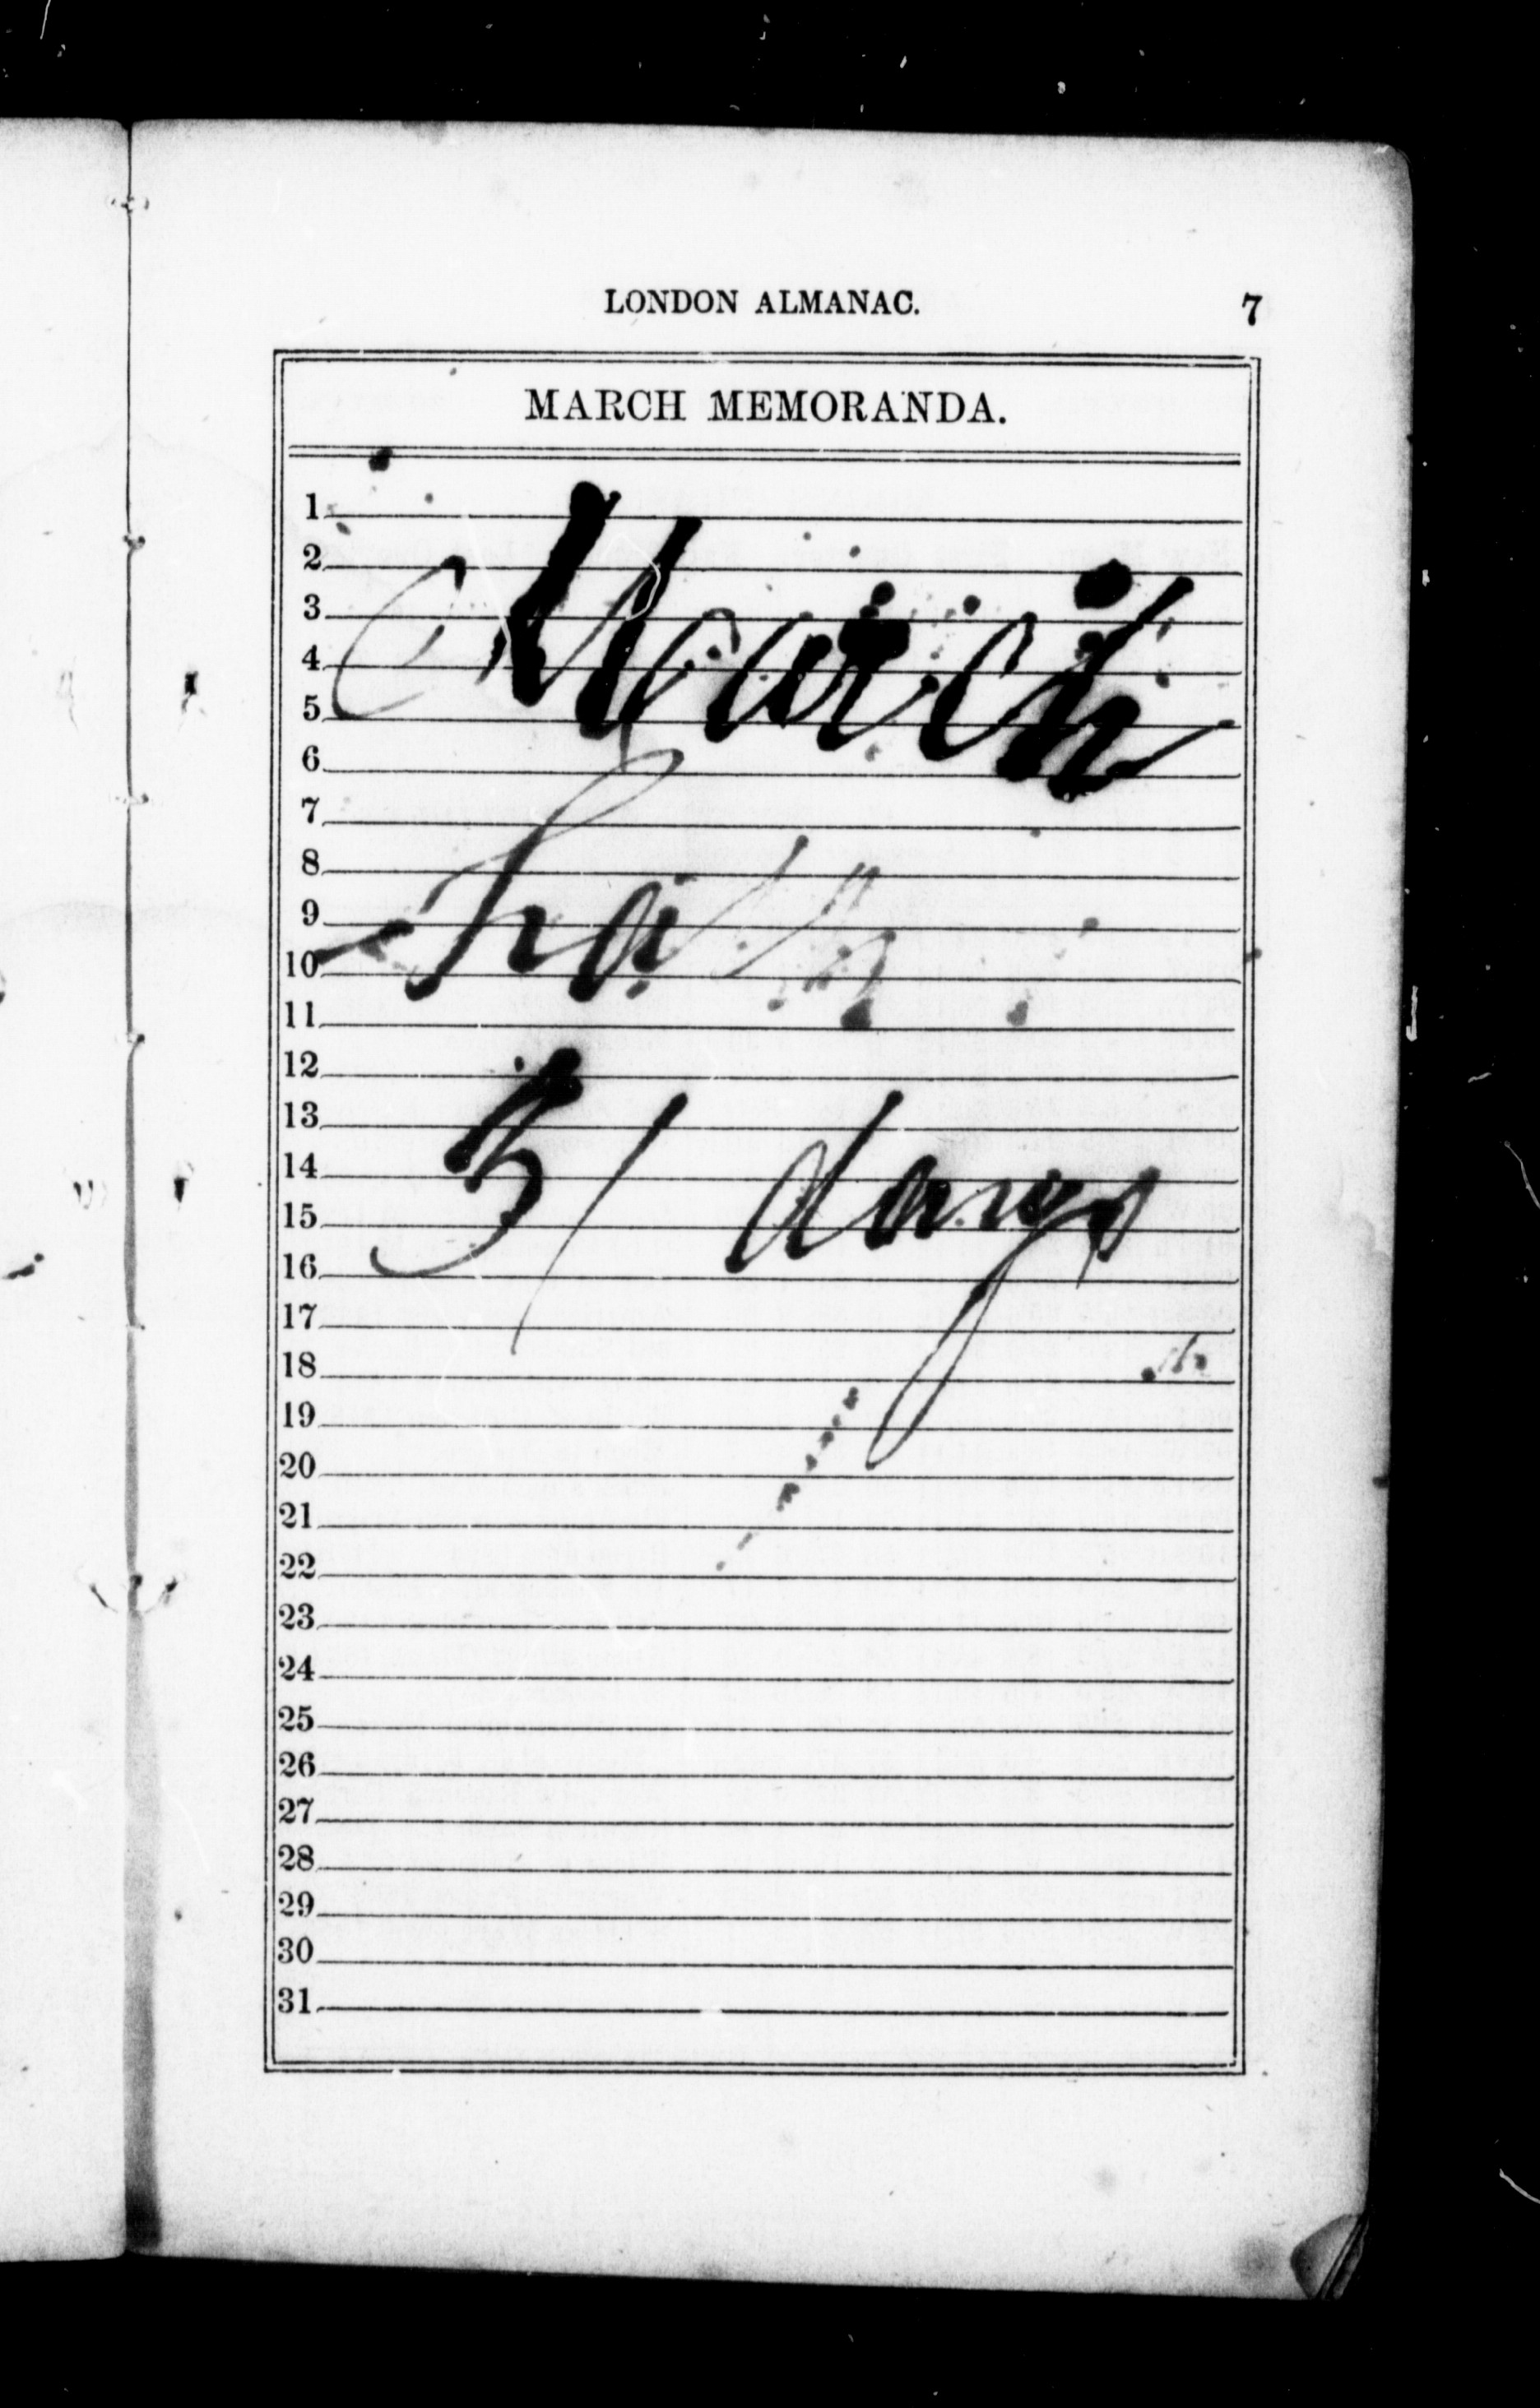 LONDON ALMANAC. 7
MARCH MEMORANDA.
1
2
3
4
5
6
7
8
9
10
11
12
13
14
15
16
17
18
19
20
21
22
23
24
25
26
27
28
29
30
31
March
has
31 days